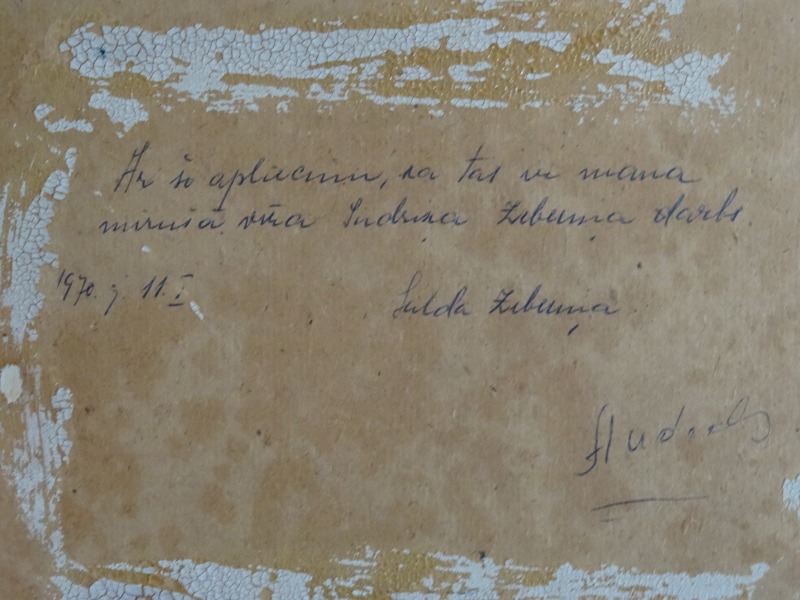 Ar šo apliecinu, ka tas ir mana
mirušā vīra Indriķa Zeberiņa darbs.
1970. g. 11. I
Hulda Zeberiņa